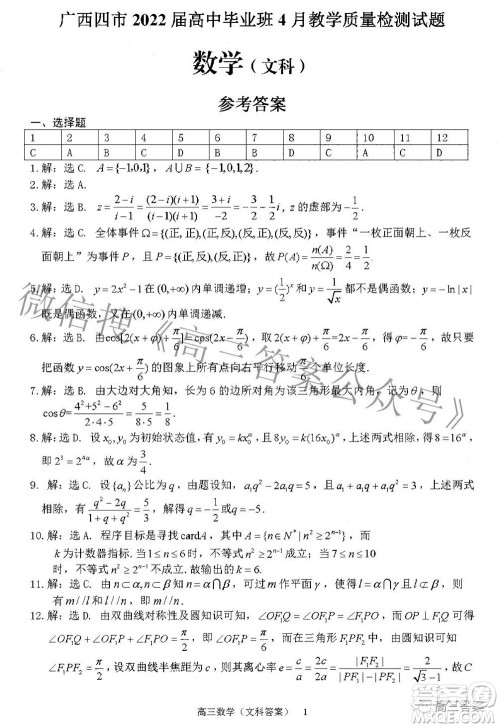 广西四市 2022 届高中毕业班 4 月教学质量检测试题
数学（文科）
参考答案
一、选择题
1 2 3 4 5 6 7 8 9 10 11 12
C A B C D B B D C A D D
1.解：选 C. A={-1,0,1}，A∪B={-1,0,1,2}.
2.解：选 A.
3.解：选 B. z=(2-i)/(i-1)=(2-i)(i+1)/((i-1)(i+1))=-3/2-1/2 i，z 的虚部为-1/2.
4.解：选 C. 全体事件Ω={(正,正),(正,反),(反,正),(反,反)}，事件“一枚正面朝上、一枚反
面朝上”为事件 P，且 P={(正,反),(反,正)}，故 P(A)=n(A)/n(Ω)=2/4=1/2.
5.解：选 D. y=2x²-1 在(0,+∞)内单调递增；y=(1/2)ˣ 和 y=1/√x 都不是偶函数，y=-ln|x|
既是偶函数，又在(0,+∞)内单调递减.
6.解：选 B. 由 cos[2(x+φ)+π/6]=cos(2x+φ)+π/3]，取 2(x+φ)+π/6=2x+π/3，φ=π/12，故只
要把函数 y=cos(2x+π/6)的图象上所有点向左平行移动π/12个单位长度.
7.解：选 B. 由大边对大角知，长为 6 的边所对角为该三角形最大内角，记为θ，则
cosθ=(4²+5²-6²)/(2·4·5)=1/8.
8.解：选 D. 设 x₀,y₀ 为初始状态值，有 y₀=kx₀^α，且 8y₀=k(16x₀)^α，上述两式相除得 8=16^α，
即 2³=2^{4α}，故α=3/4.
9. 解：选 C. 设{aₙ}公比为 q，由题意知，a₁q²-2a₁q=5，且 a₁+a₁q+a₁q²=3，上述两式
相除，有 (q²-2q)/(1+q+q²)=5/3，解得 q=-5/2 或-1/2.
10.解：选 A. 程序目标是寻找 cardA，其中 A={n∈N*|n²≥2^{n-1}}，
k 为计数器标志. 当 1≤n≤6 时，不等式 n²≥2^{n-1}成立，
当 n≥7 时，不等式 n²≥2^{n-1}不成立. 故 k=6.
11.解：选 D. 由 n⊂α,m⊂β,α∩β=l 可知，若 m//n，则 m//平面α，且 n//平面β，则
有 m//l 和 l//n.
12.解：选 D. 由双曲线对称性与圆知识可知，∠OF₁Q=∠OF₁P=∠F₁PO，而 OP⊥F₁Q 可得
∠OF₁Q=∠OF₁P=∠F₁PO=π/6，即∠PF₁F₂=π/6，而在三角形 F₁PF₂ 中，由圆知识可知
∠F₁PF₂=π/2，设双曲线半焦距为 c，则有离心率 e=|F₁F₂|/||PF₁|-|PF₂||=
高三数学（文科答案） 1
微信搜《高三答案公众号》
高三答案